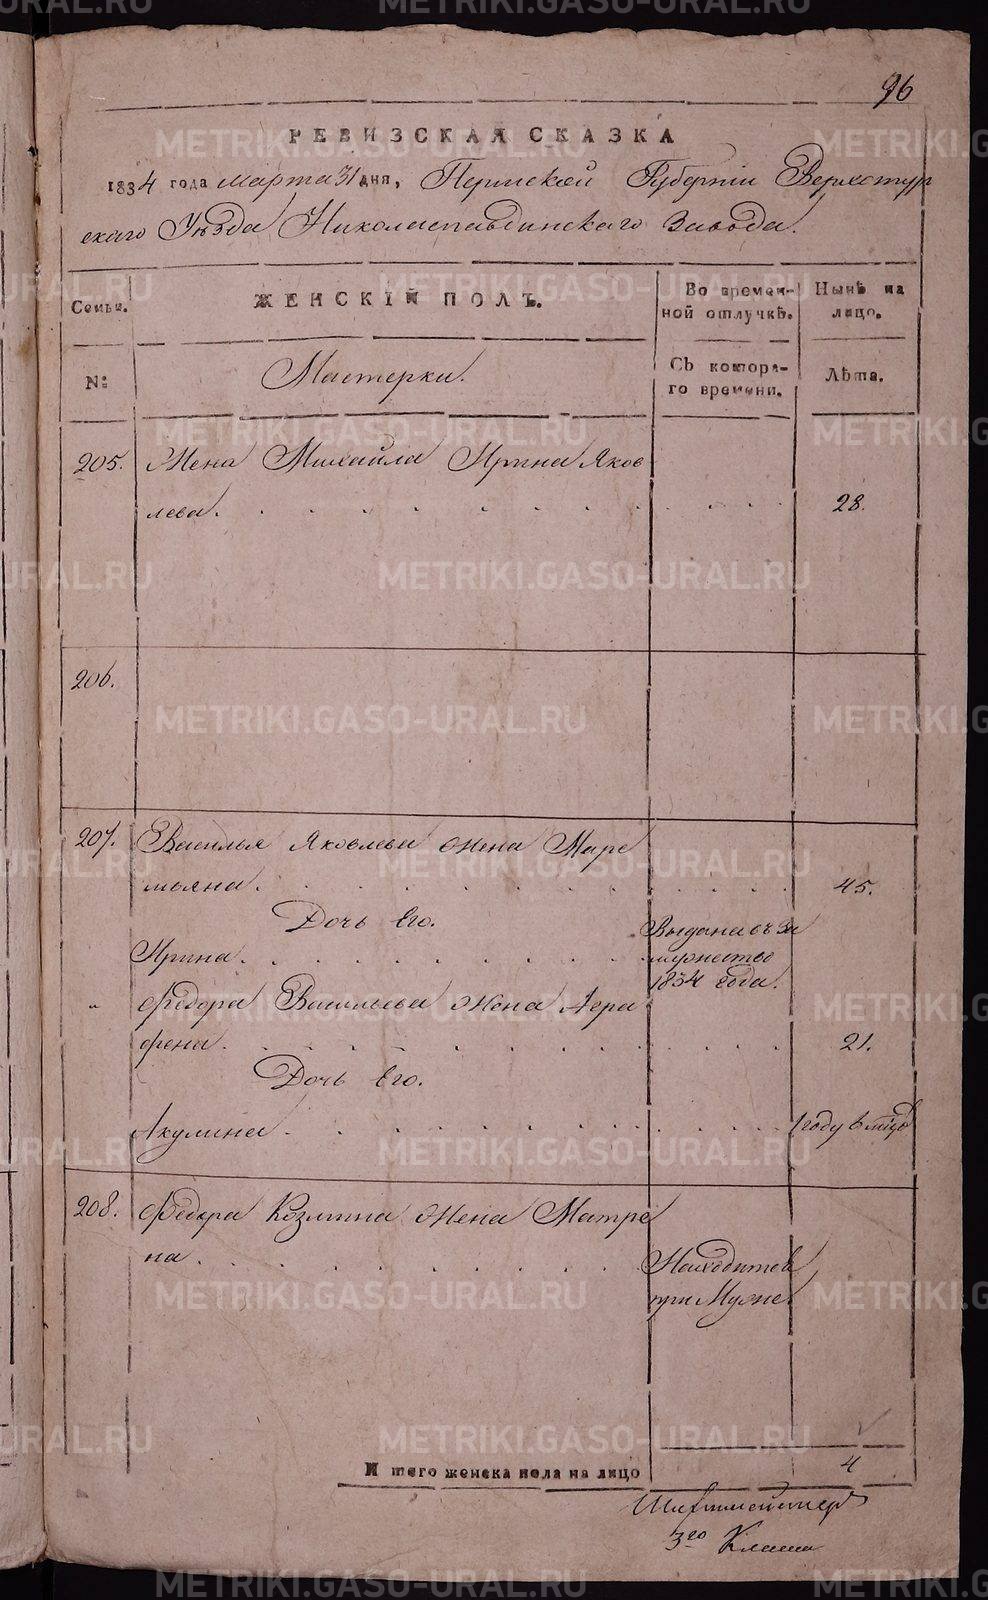 96
РЕВИЗСКАЯ СКАЗКА
1834 года Марта 31 дня, Пермской Губерніи Верхотур
скаго Уѣзда Николаепавдинскаго Завода.
Семьи. ЖЕНСКІЙ ПОЛЪ. Во времен- Нынѣ на
ной отлучкѣ. лицо.
№ Мастерки. Съ которa- Лѣта.
го времени.
205. Жена Михайла Ирина Яков
лева. 28.
206.
207. Василья Яковлева жена Маре
мьяна. 45.
Дочь Его.
Ирина. Выдана въ За
мужество
1834 года.
„ Федора Васильева жена Агра
фена. 21.
Дочь Его.
Акулина. 1 году
208. Федора Козмина жена Матре
на. Находится
при Муже
Итого женска пола на лицо 4
Шихтмейстер
3го Класса
METRIKI.GASO-URAL.RU